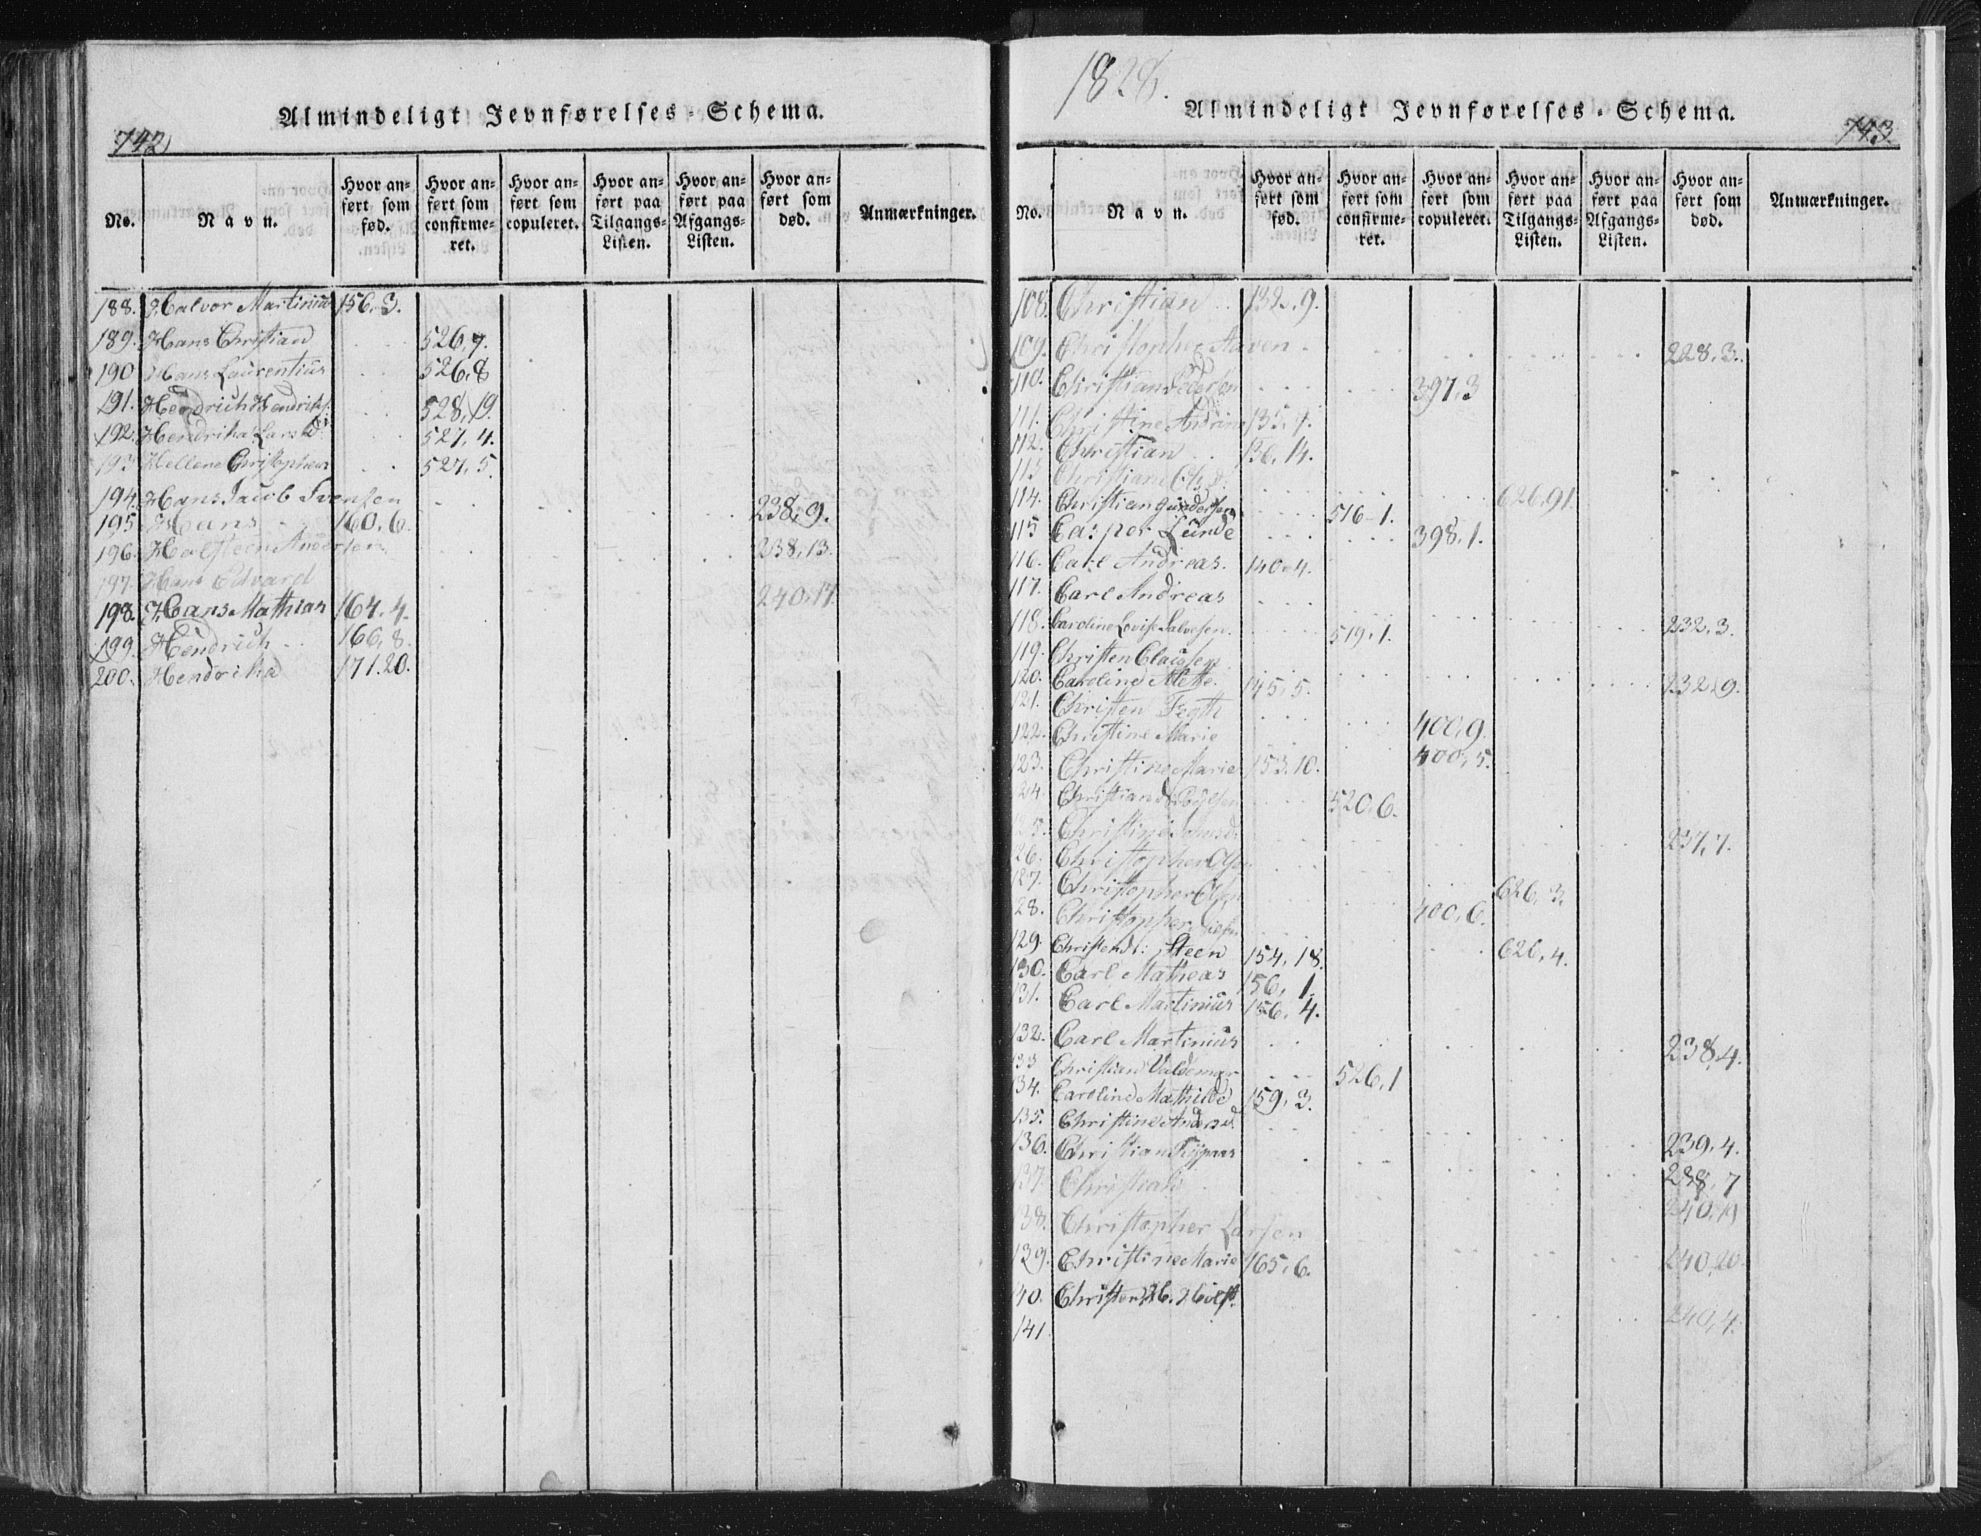 Almindeligt Jevnførelses-Schema.
742
No.
Navn.
Hvor anført som fød.
Hvor anført som confirmeret.
Hvor anført som copuleret.
Hvor anført paa Tilgangs-Listen.
Hvor anført paa Afgangs-Listen.
Hvor anført som død.
Anmærkninger.
188. Halvor Martinius 156.3.
189. Hans Christian 526,7.
190 Hans Laurentius 526,8
191. Hendrich Hendriks. 528,19.
192. Hendrika Larsd. 527,4.
193 Hellene Christophers 527,5.
194. Hans Jacob Svensen 238,9.
195. Hans 160.6.
196. Holsteen Andersen 238,13.
197. Hans Edvard 240,17
198. Hans Mathias 164.4.
199. Hendrich 166,8.
200. Hendrika 171.20.
1828.
Almindeligt Jevnførelses-Schema.
743.
No.
Navn.
Hvor anført som fød.
Hvor anført som confirmeret.
Hvor anført som copuleret.
Hvor anført paa Tilgangs-Listen.
Hvor anført paa Afgangs-Listen.
Hvor anført som død.
Anmærkninger.
108. Christian 132.9.
109. Christopher Aaven 228,3.
110. Christian Pedersen 397,3
111. Christine Andrine 135,7.
112. Christian 136,14.
113 Christiane 626,91.
114. Christian Gundersen 516-1.
115 Casper Lunde 398,1.
116. Carl Andreas. 140.4.
117. Carl Andreas 232,3.
118. Caroline Lovise Salvesen. 519,1.
119. Christen Clausen 232,9.
120. Caroline Mette. 145,5.
121. Christen Froth 400,9.
122. Christine Marie 400,5.
123. Christine Marie 153.10.
24. Christian 520,6.
25. Christine 237,7.
26. Christopher Ols. 626,3.
127. Christopher Olsen 400,6.
28. Christopher 626,4.
129. Christen Steen 154,18.
130. Carl Matheas 156,1.
131. Carl Martinius 156,4.
132. Carl Martinius 238,4.
133 Christian Valdemar 526,1
134. Caroline Mathilde 159,3.
135. Christine Andersd. 239,4.
136. Christian 238,7
137. Christian 240,19
138. Christopher Larsen 240,20
139. Christine Marie 165,6.
40. Christen H. Holst. 240,4.
141.